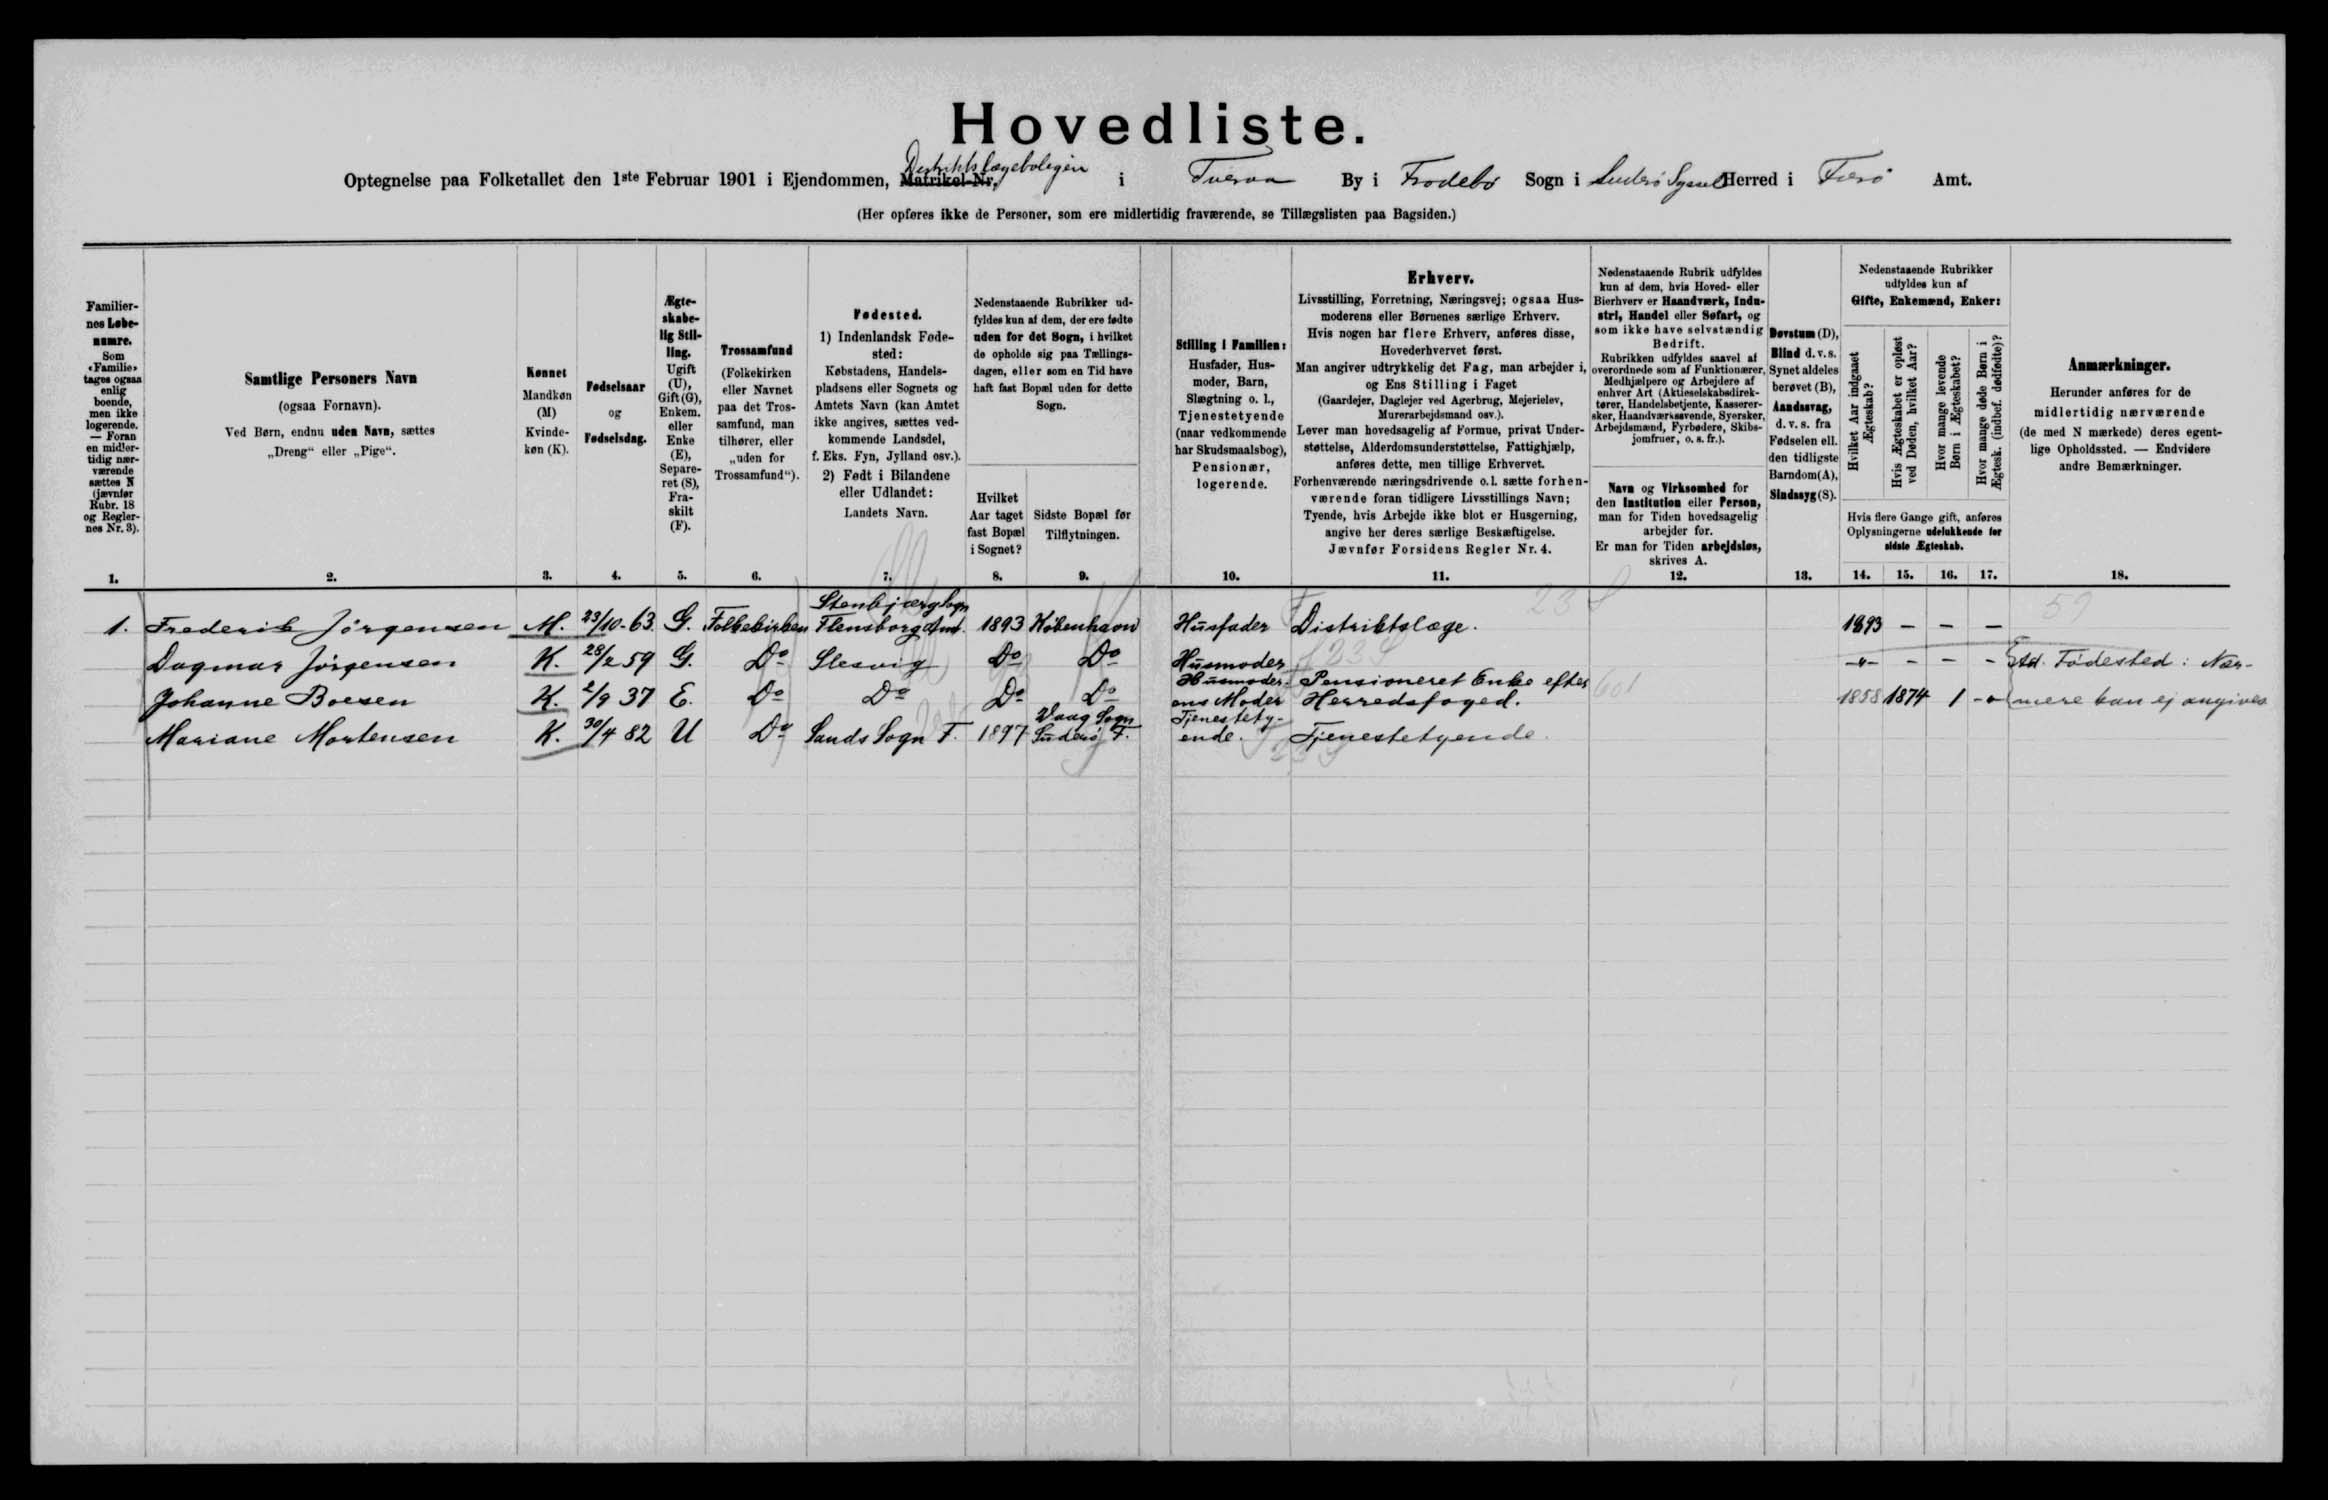 Hovedliste.
Optegnelse paa Folketallet den 1ste Februar 1901 i Ejendommen, Matrikel-Nr. Distriktslægeboligen i Tveraa By i Frodebø Sogn i Suderø Syssel Herred i Færø Amt.
(Her opføres ikke de Personer, som ere midlertidig fraværende, se Tillægslisten paa Bagsiden.)
Familier-
nes Løbe-
numre.
Som
«Familie»
tages ogsaa
enlig
boende,
men ikke
logerende.
— Foran
en midler-
tidig nær-
værende
sættes N
(jævnfør
Rubr. 18
og Regler-
nes Nr. 3).
1.
Samtlige Personers Navn
(ogsaa Fornavn).
Ved Børn, endnu uden Navn, sættes
„Dreng“ eller „Pige“.
2.
Kønnet
Mandkøn
(M)
Kvinde-
køn (K).
3.
Fødselsaar
og
Fødselsdag.
4.
Ægte-
skabe-
lig Stil-
ling.
Ugift
(U),
Gift (G),
Enkem.
eller
Enke
(E),
Separe-
ret (S),
Fra-
skilt
(F).
5.
Trossamfund
(Folkekirken
eller Navnet
paa det Tros-
samfund, man
tilhører, eller
„uden for
Trossamfund“).
6.
Fødested.
1) Indenlandsk Føde-
sted:
Købstadens, Handels-
pladsens eller Sognets og
Amtets Navn (kan Amtet
ikke angives, sættes ved-
kommende Landsdel,
f. Eks. Fyn, Jylland osv.).
2) Født i Bilandene
eller Udlandet:
Landets Navn.
7.
Nedenstaaende Rubrikker ud-
fyldes kun af dem, der ere fødte
uden for det Sogn, i hvilket
de opholde sig paa Tællings-
dagen, eller som en Tid have
haft fast Bopæl uden for dette
Sogn.
Hvilket
Aar taget
fast Bopæl
i Sognet?
8.
Sidste Bopæl før
Tilflytningen.
9.
Stilling i Familien:
Husfader, Hus-
moder, Barn,
Slægtning o. l.,
Tjenestetyende
(naar vedkommende
har Skudsmaalsbog),
Pensionær,
logerende.
10.
Erhverv.
Livsstilling, Forretning, Næringsvej; ogsaa Hus-
moderens eller Børnenes særlige Erhverv.
Hvis nogen har flere Erhverv, anføres disse,
Hovederhvervet først.
Man angiver udtrykkelig det Fag, man arbejder i,
og Ens Stilling i Faget
(Gaardejer, Daglejer ved Agerbrug, Mejerielev,
Murerarbejdsmand osv.).
Lever man hovedsagelig af Formue, privat Under-
støttelse, Alderdomsunderstøttelse, Fattighjælp,
anføres dette, men tillige Erhvervet.
Forhenværende næringsdrivende o.l. sætte forhen-
værende foran tidligere Livsstillings Navn;
Tyende, hvis Arbejde ikke blot er Husgerning,
angive her deres særlige Beskæftigelse.
Jævnfør Forsidens Regler Nr. 4.
11.
Nedenstaaende Rubrik udfyldes
kun af dem, hvis Hoved- eller
Bierhverv er Haandværk, Indu-
stri, Handel eller Søfart, og
som ikke have selvstændig
Bedrift.
Rubrikken udfyldes saavel af
overordnede som af Funktionærer,
Medhjælpere og Arbejdere af
enhver Art (Aktieselskabsdirek-
tører, Handelsbetjente, Kasserer-
sker, Haandværkssvende, Syersker,
Arbejdsmænd, Fyrbødere, Skibs-
jomfruer, o. s. fr.).
Navn og Virksomhed for
den Institution eller Person,
man for Tiden hovedsagelig
arbejder for.
Er man for Tiden arbejdsløs,
skrives A.
12.
Døvstum (D),
Blind d. v. s.
Synet aldeles
berøvet (B),
Aandssvag,
d. v. s. fra
Fødselen ell.
den tidligste
Barndom (A),
Sindssyg (S).
13.
Nedenstaaende Rubrikker
udfyldes kun af
Gifte, Enkemænd, Enker:
Hvilket Aar indgaaet
Ægteskab?
Hvis Ægteskabet er opløst
ved Døden, hvilket Aar?
Hvor mange levende
Børn i Ægteskabet?
Hvor mange døde Børn i
Ægtesk. (indbef. dødfødte)?
Hvis flere Gange gift, anføres
Oplysningerne udelukkende for
sidste Ægteskab.
14. 15. 16. 17.
Anmærkninger.
Herunder anføres for de
midlertidig nærværende
(de med N mærkede) deres egent-
lige Opholdssted. — Endvidere
andre Bemærkninger.
18.
1. Frederik Jörgensen M. 23/10-63 G. Folkekirken Stenbjærg Sogn Flensborg Amt. 1893 København Husfader Distriktslæge. 1893 — — —
Dagmar Jörgensen K. 28/2 59 G. Do Slesvig Do Do Husmoder -"- - - - Ad. Födested: Nær-
Johanne Boesen K. 2/9 37 E. Do Do Do Do Husmoder-ens Moder Pensioneret Enke efter Herredsfoged. 1858 1874 1 -o- mere kan ej angives
Mariane Mortensen K. 30/4 82 U Do Sands Sogn F. 1897 Vaag Sogn Suderö F. Tjenestety-ende. Tjenestetyende.
23 S
59
23 S
601
23 S